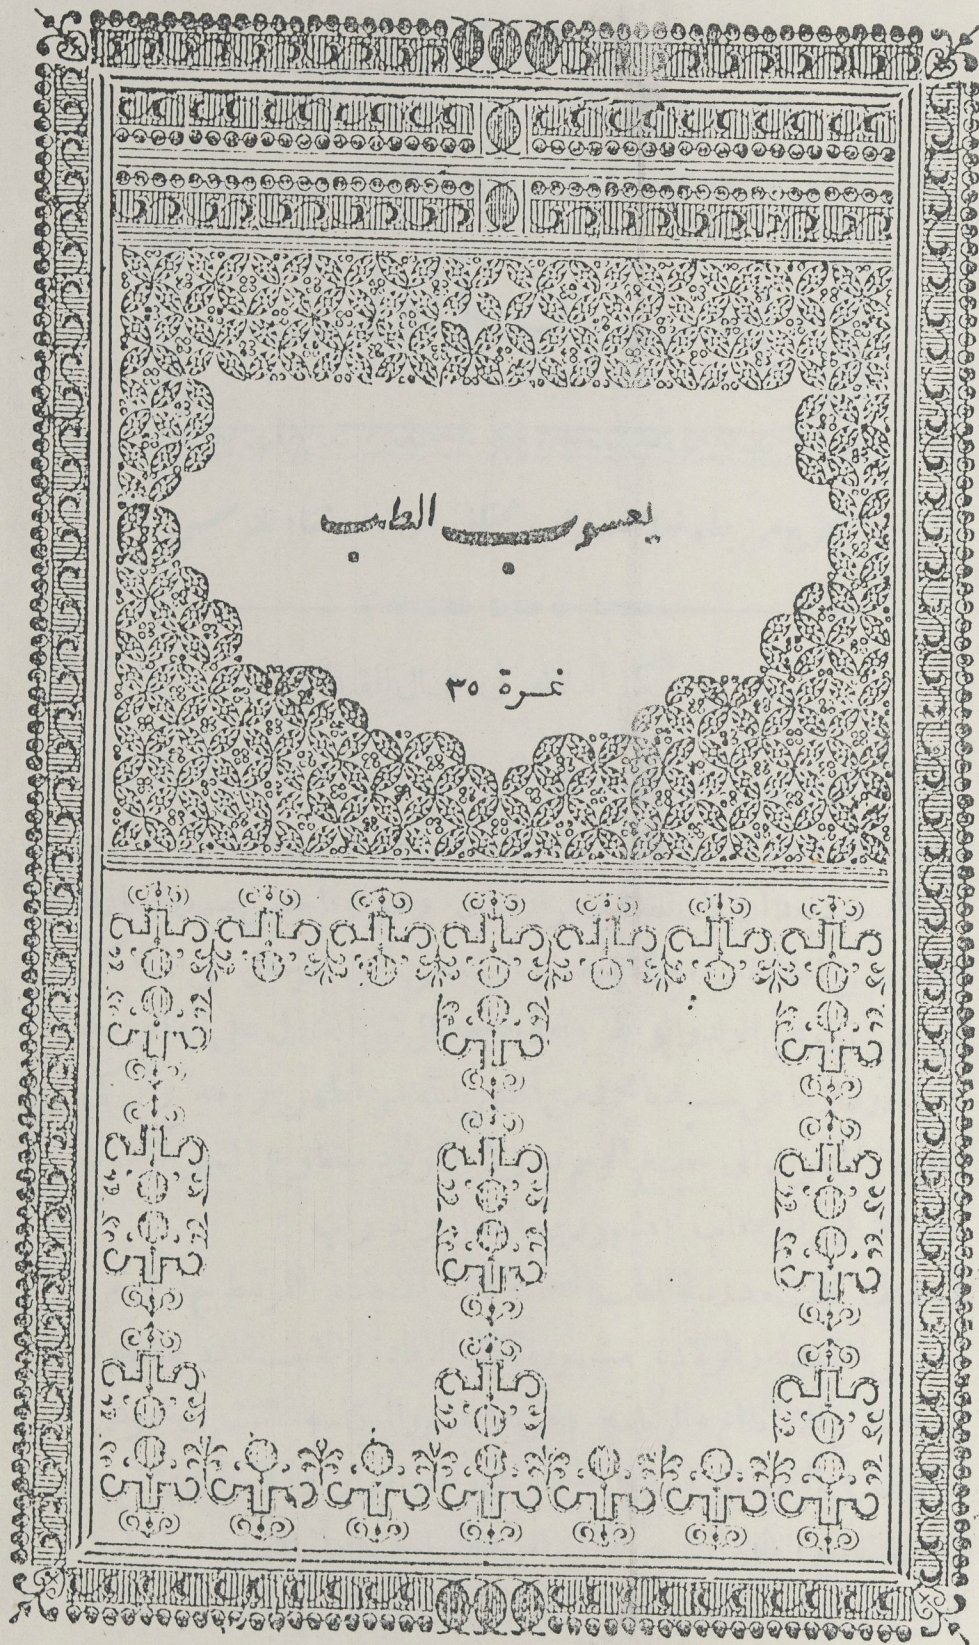 يعسوب الطب
نمرة ٣٥